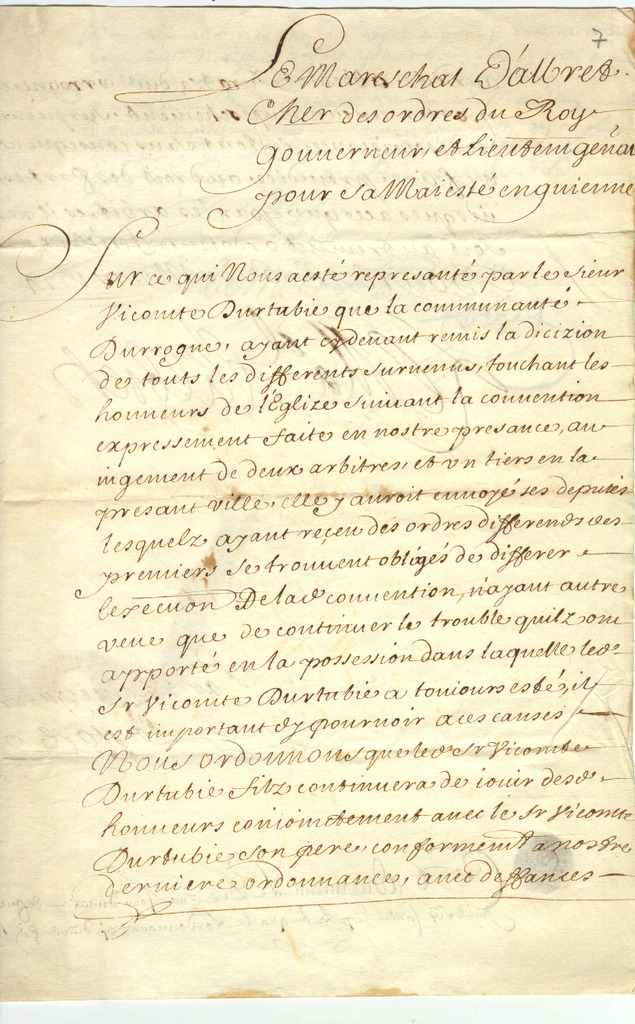 7
Le Mareschal D'albret
Cher des ordres du Roy
gouuerneur, et Lieutem genãl
pour sa Maiesté en guienne
Sur ce qui Nous a esté represanté par le sieur
Vicomte Durtubie que la communauté
Durrogne, ayant cydeuant remis la dicizion
de touts les differents suruenus, touchant les
honneurs de l'Eglize suiuant la conuention
expressement faite en nostre presance, au
iugement de deux arbitres, et vn tiers en la
presant ville, elle y auroit enuoyé ses deputés
lesquelz ayant reçeu des ordres differends des
premiers se trouuent obligés de differer
l'execution De lad conuention, n'ayant autre
veue que de continuer le trouble quilz ont
apporté en la possession dans laquelle led
Sr Vicomte Durtubie a toujours esté, il
est important dy pouruoir a ces causes
Nous ordonnons que led Sr Vicomte
Durtubie filz continuera de iouir desd
honneurs conioinctement auec le Sr Vicomte
Durtubie son pere, conformemt a nostre
derniere ordonnance, auec deffances